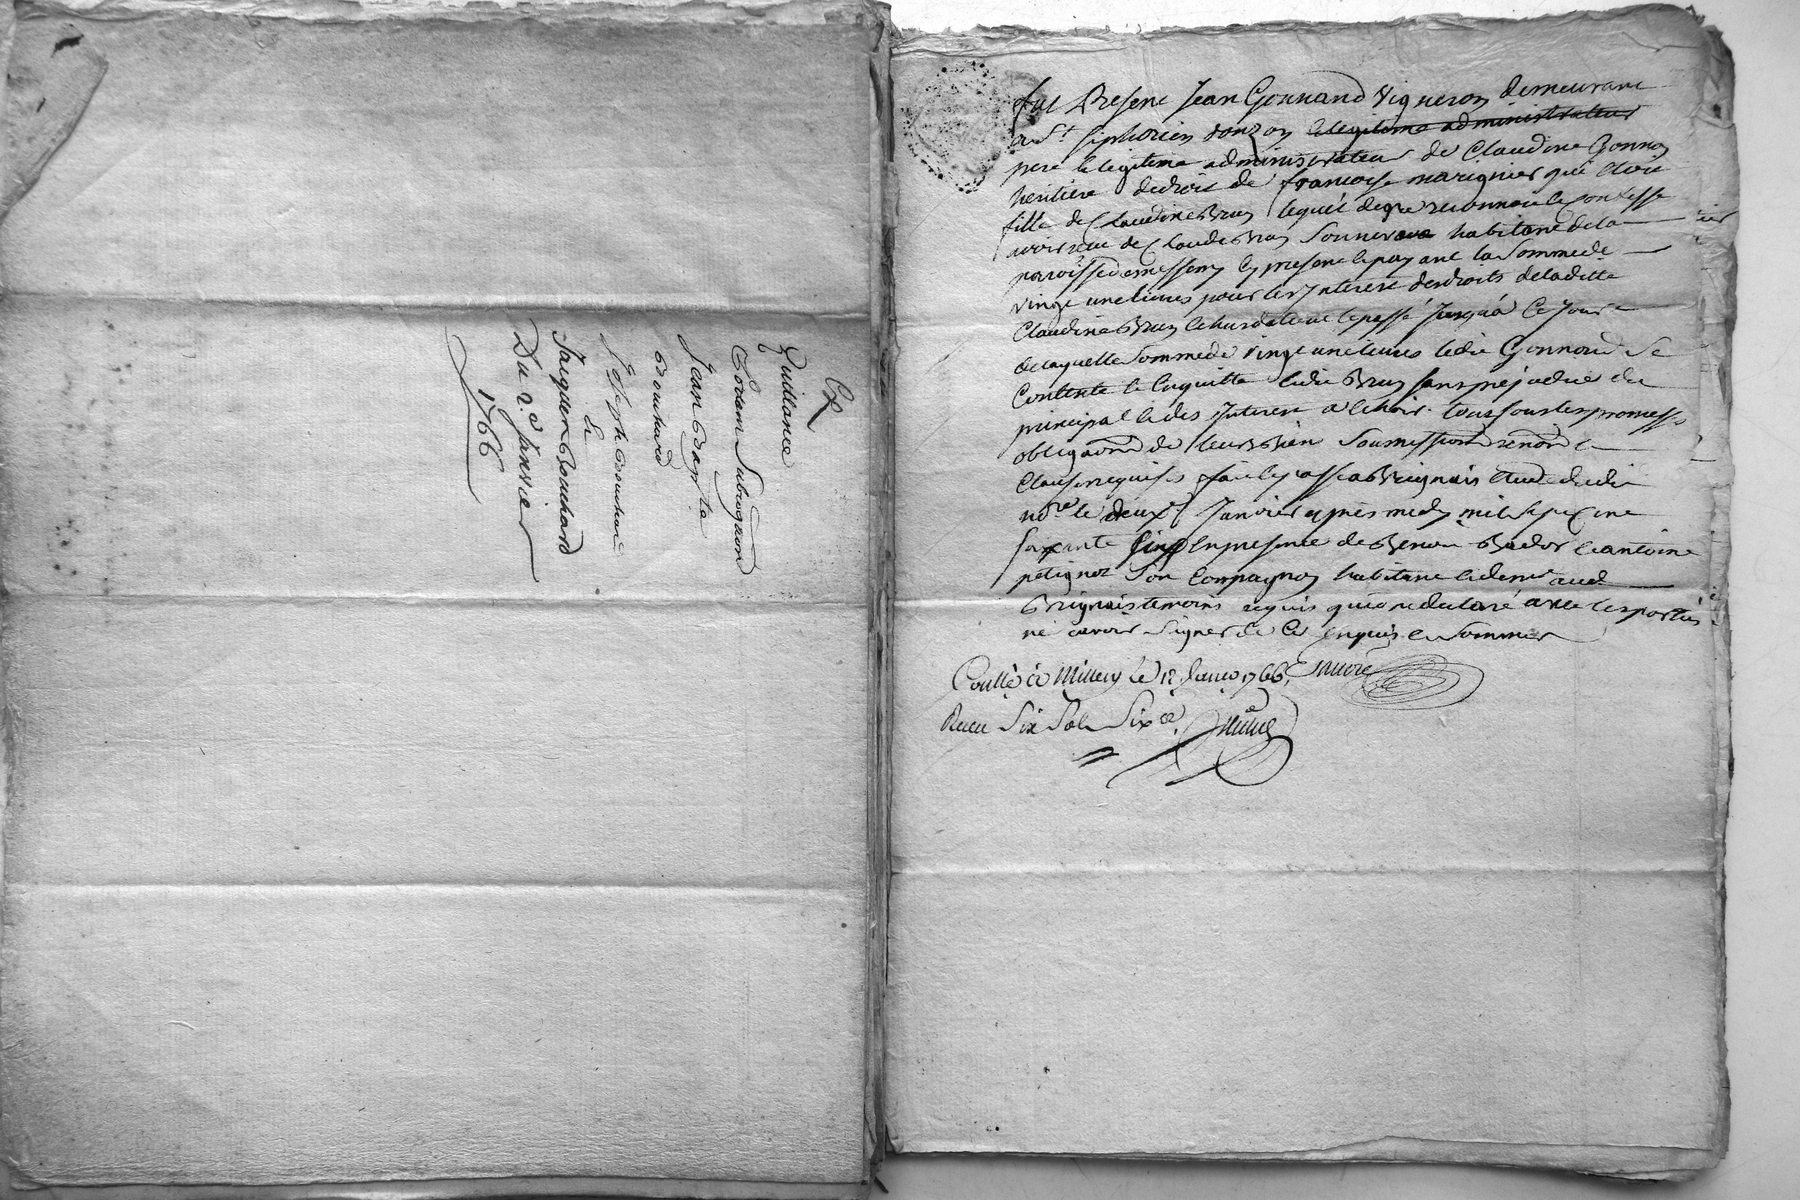 Ex
Quittance
Portan Subrogaon
Jean Baptte
Bouchard
Joseph Bouchard
&
Jacques Bouchard
Du 2e Janvier
1766
fut present Jean Gonnand Vigneron demeurant
a St. siphorien donzon le legitime administrateur
pere le legitime administrateur de Claudine Gonnon
heritiere de droit de francoise marignier qui etoit
fille de Claudine Brun lequel de gre reconnoit et confesse
avoir recu de Claude Brun habitant de la
paroisse de messemy cy present et payant la Somme de
vingt une livres pour les Interest des droits de ladite
Claudine Brun echus de tout le passé Jusqu'a Ce Jour
de laquelle Somme de vingt une livres ledit Gonnond Se
Contente et En quitte ledit Brun sans prejudice du
principal et des Interest a echoir. tous sous les promesses
obligaons de leurs Biens Soumissions renons et
Clauses requises fait et passé a Brignais Etude dudit
nore. le deuxe Janvier apres midy mil sept cent
soixante Six En presence de Benoit Bador et antoine
petignot Son Compagnon habitant et demt aud.
Brignais temoins requis qui ont declaré avec les parties
ne scavoir Signer de Ce Enquis et Sommés
Conllé à Millery le 12 Janvier 1766.
Recu Six Sols Six d.